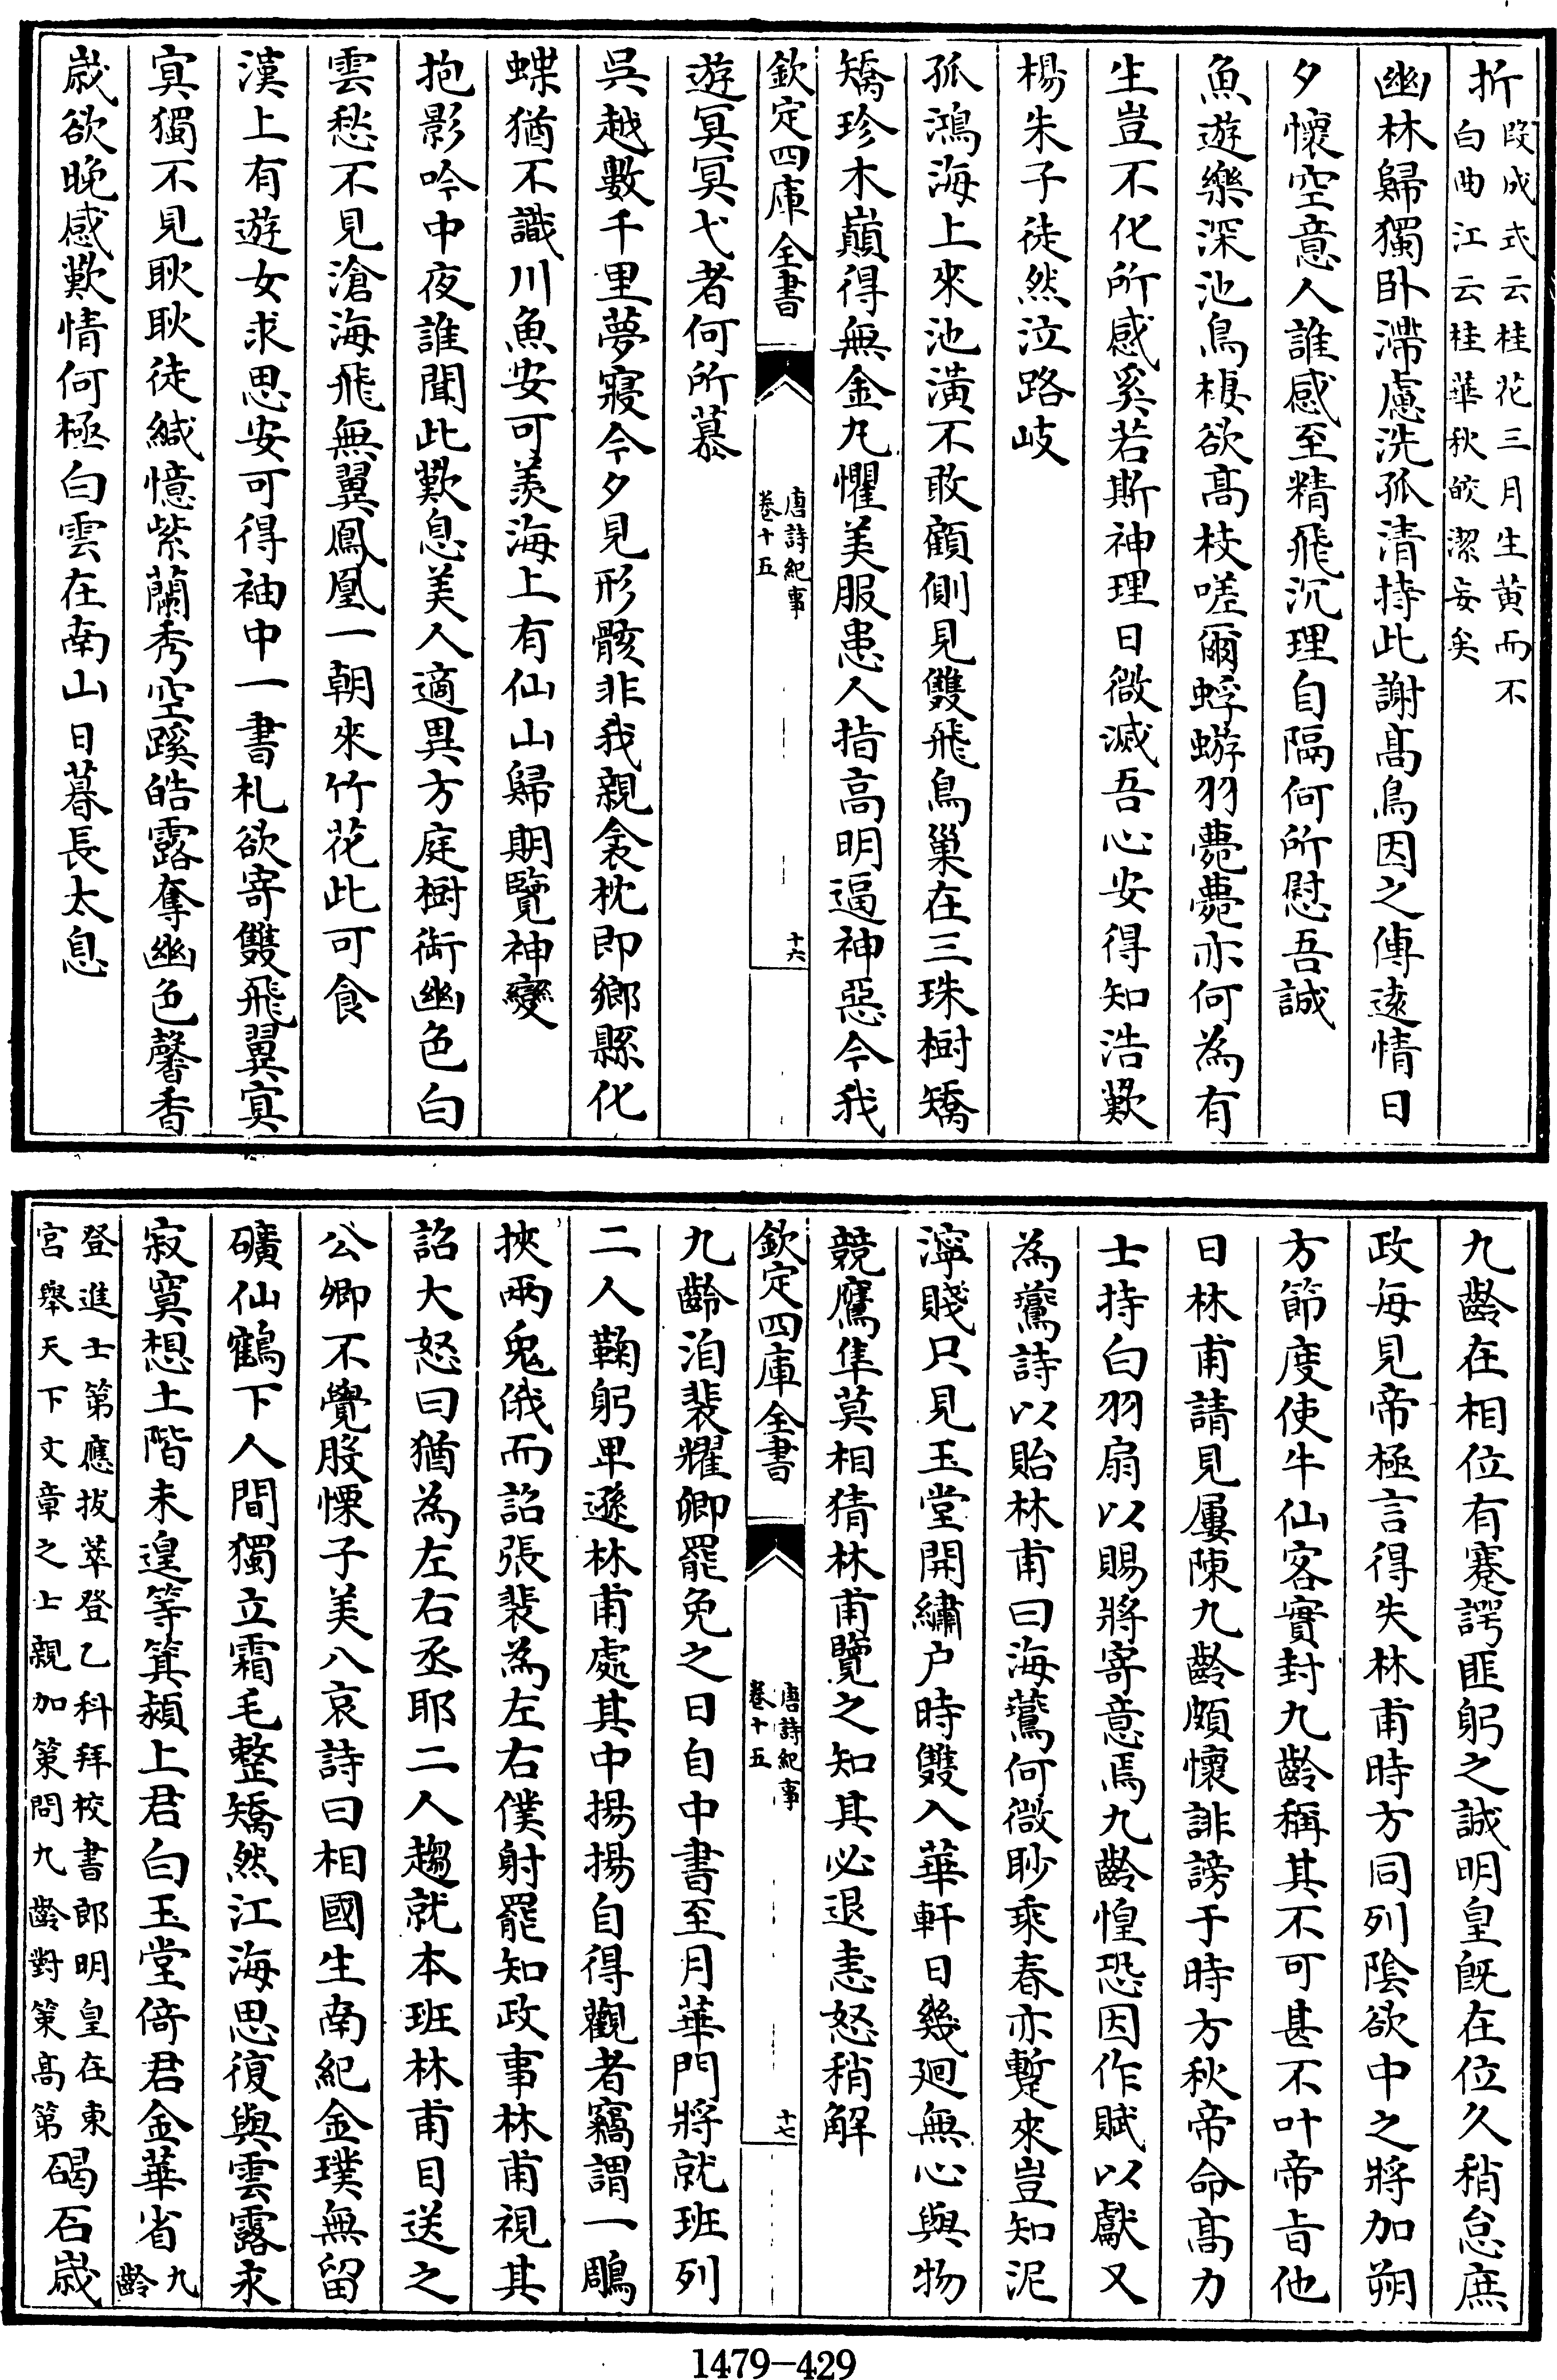 折段成式云桂花三月生黄而不
白曲江云桂華秋皎潔妄矣
幽林歸獨卧滯慮洗孤清持此謝髙鳥因之傳逺情日
夕懷空意人誰感至精飛沉理自隔何所慰吾誠
魚遊樂深池鳥棲欲髙枝嗟爾蜉蝣羽薨薨亦何為有
生豈不化所感奚若斯神理日微滅吾心安得知浩歎
楊朱子徒然泣路岐
孤鴻海上來池潢不敢顧側見雙飛鳥巢在三珠樹矯
矯珍木巔得無金丸懼美服患人指高明逼神惡今我
欽定四庫全書
唐詩紀事
卷十五
十六
遊冥冥弋者何所慕
呉越數千里夢寢今夕見形骸非我親衾枕即鄉縣化
蝶猶不識川魚安可羨海上有仙山歸期覽神變
抱影吟中夜誰聞此歎息美人適異方庭樹銜幽色白
雲愁不見滄海飛無翼鳳凰一朝來竹花此可食
漢上有遊女求思安可得袖中一書札欲寄雙飛翼寘
寘獨不見耿耿徒緘憶紫蘭秀空蹊皓露奪幽色馨香
歲欲晚感歎情何極白雲在南山日暮長太息
九齡在相位有蹇諤匪躬之誠明皇旣在位久稍怠庶
政每見帝極言得失林甫時方同列陰欲中之將加朔
方節度使牛仙客實封九齡稱其不可甚不叶帝旨他
日林甫請見屢陳九齡頗懷誹謗于時方秋帝命髙力
士持白羽扇以賜將寄意焉九齡惶恐因作賦以獻又
為鷰詩以貽林甫曰海鷰何微眇乘春亦蹔來豈知泥
濘賤只見玉堂開繡户時雙入華軒日幾廻無心與物
競鷹隼莫相猜林甫覽之知其必退恚怒稍解
欽定四庫全書
唐詩紀事
卷十五
十七
九齡洎裴耀卿罷免之日自中書至月華門將就班列
二人鞠躬卑遜林甫處其中揚揚自得觀者竊謂一鵰
挾兩兔俄而詔張裴為左右僕射罷知政事林甫視其
詔大怒曰猶為左右丞耶二人趨就本班林甫目送之
公卿不覺股慄子美八哀詩曰相國生南紀金璞無留
礦仙鶴下人間獨立霜毛整矯然江海思復與雲露永
寂寞想土階未遑等箕潁上君白玉堂倚君金華省九
齡
登進士第應拔萃登乙科拜校書郎明皇在東
宮舉天下文章之士親加策問九齡對策髙第碣石歲